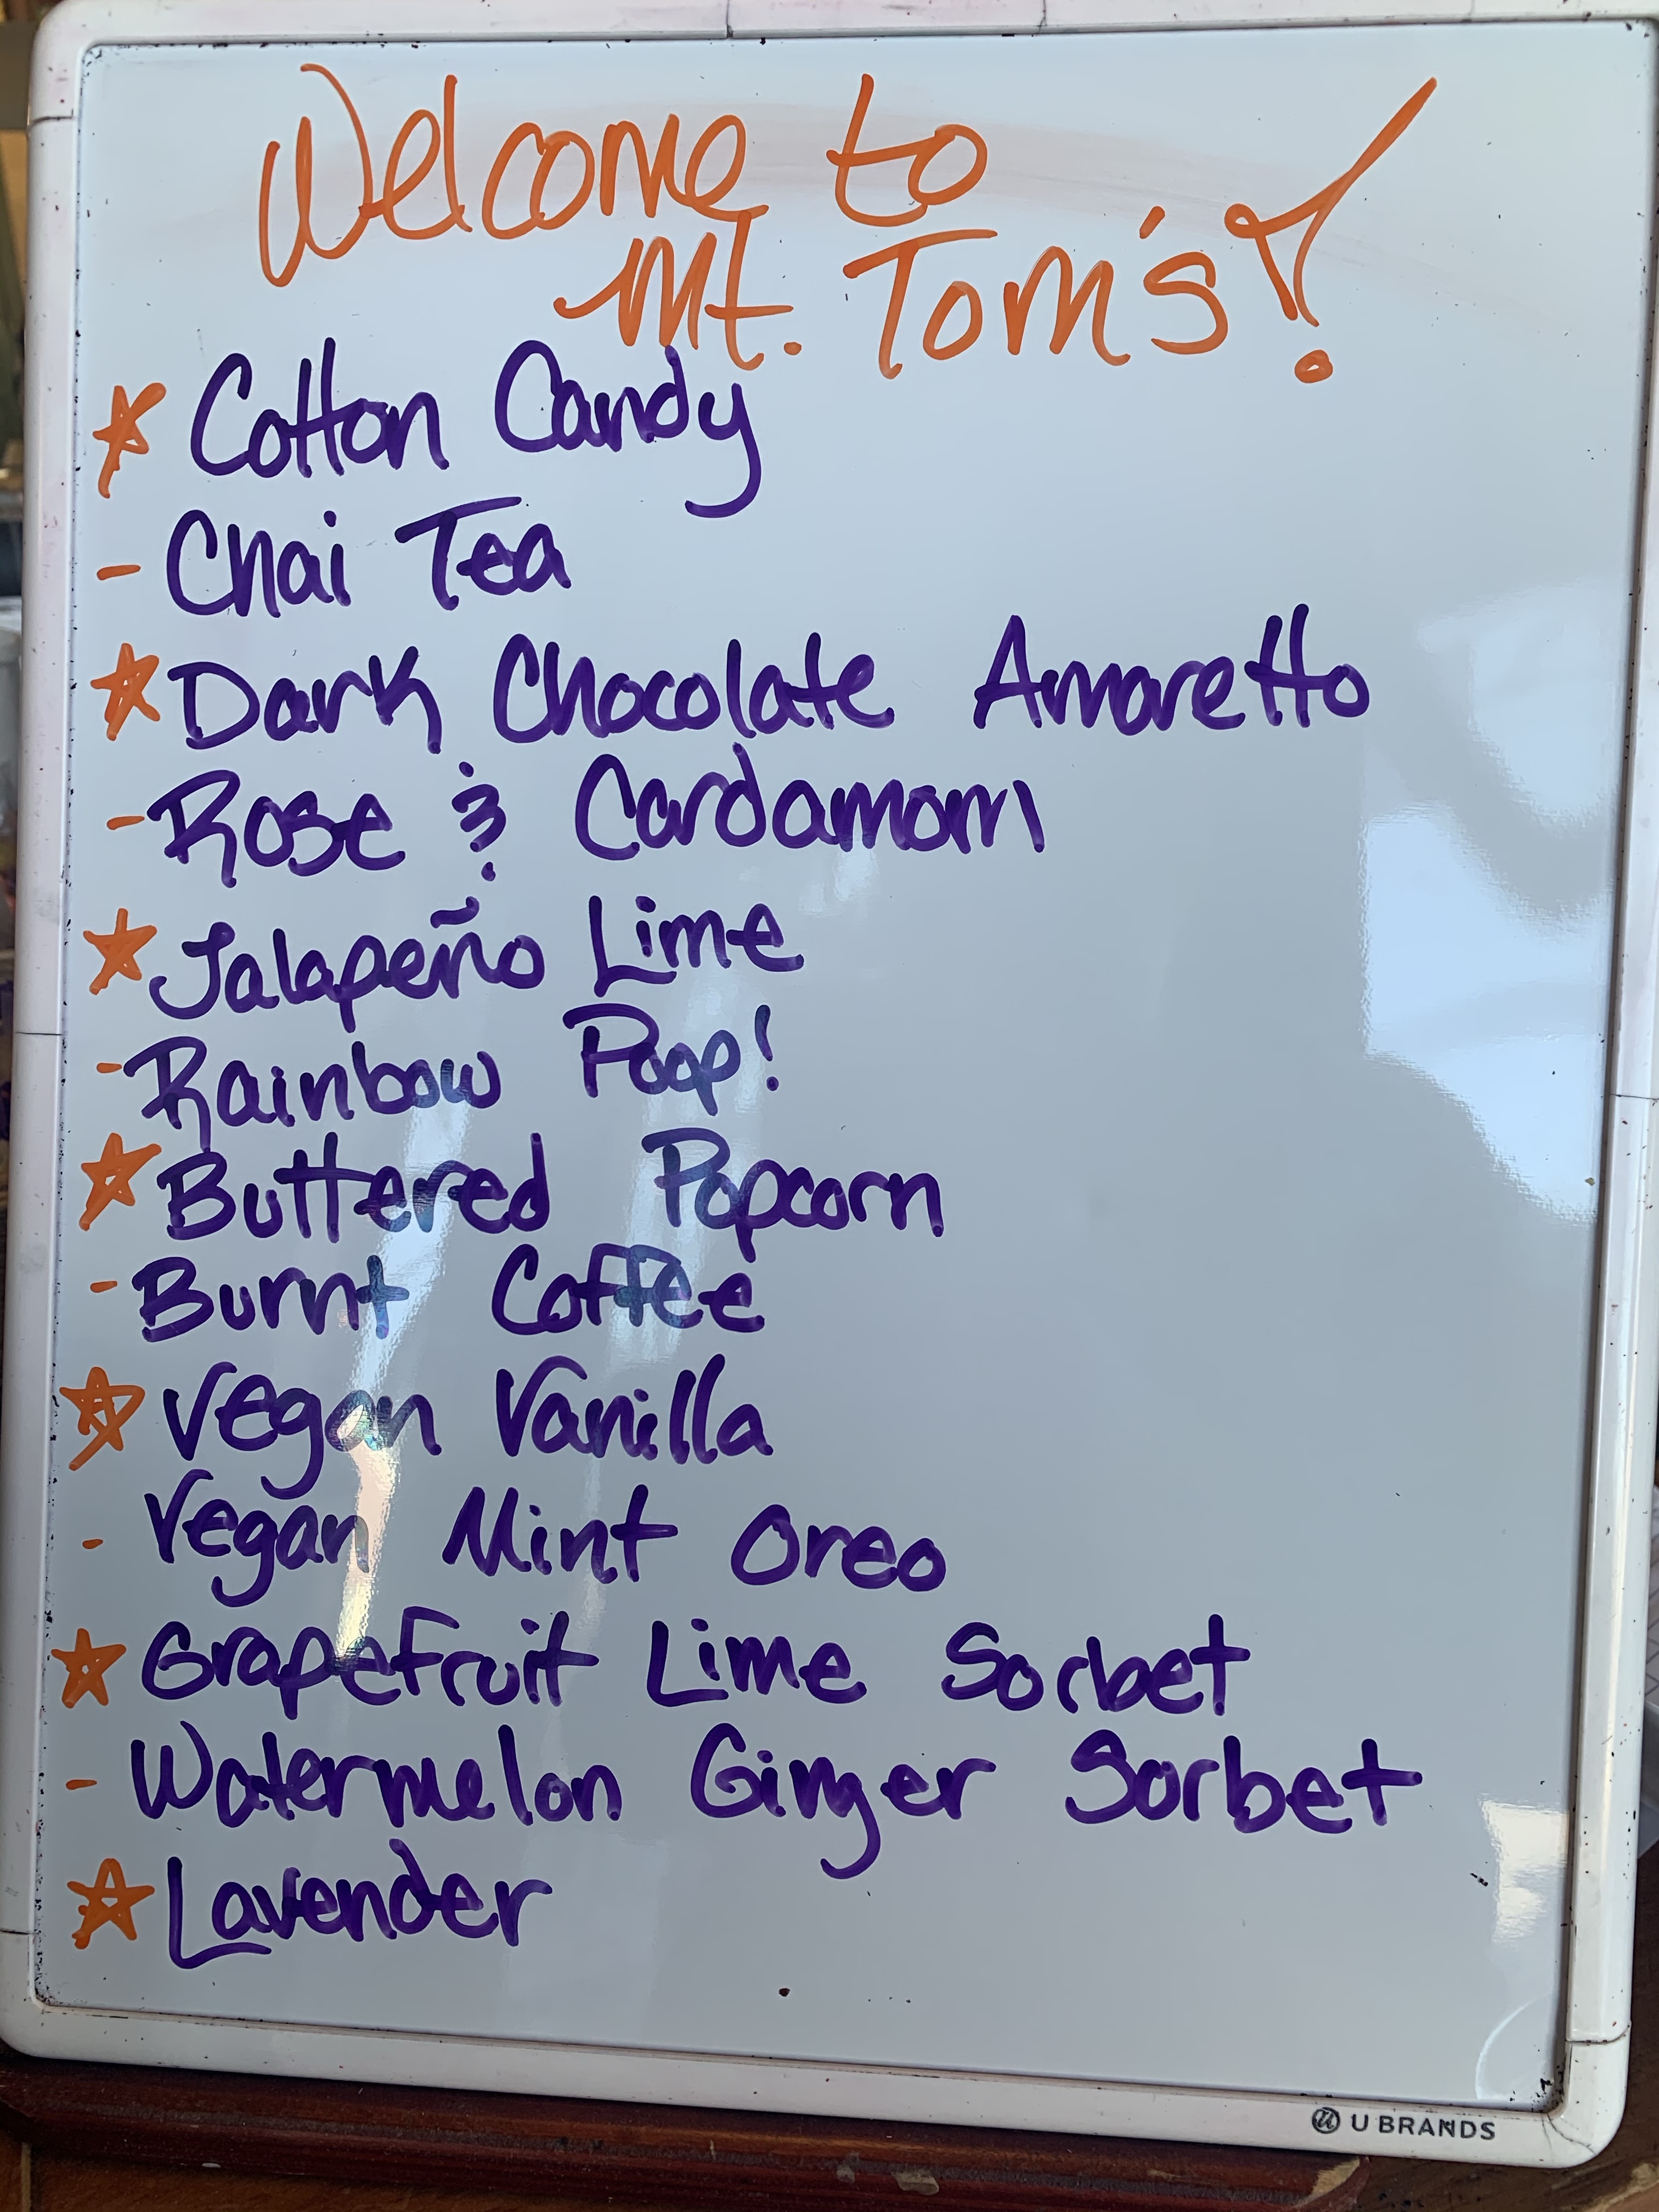 Welcome to
Mt. Tom's!
☆ Cotton Candy
- Chai Tea
☆ Dark Chocolate Amaretto
- Rose & Cardamom
☆ Jalapeño Lime
- Rainbow Poop!
☆ Buttered Popcorn
- Burnt Coffee
☆ Vegan Vanilla
- Vegan Mint Oreo
☆ Grapefruit Lime Sorbet
- Watermelon Ginger Sorbet
☆ Lavender
U BRANDS